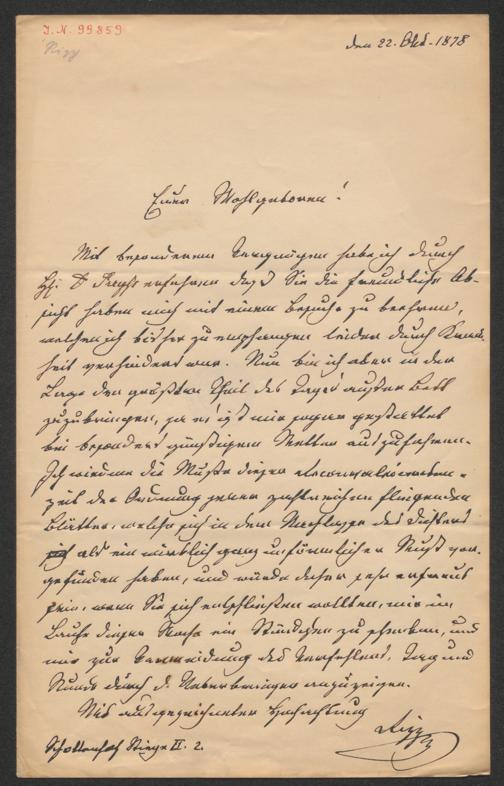 I. N. 99859
Rizy
den 22. Okt. 1878
Euer Wohlgeboren!
Mit besonderem Vergnügen habe ich durch
H. Dr erfahren daß Sie die freundliche Ab-
sicht haben mich mit einem Besuche zu beehren,
welchen ich bisher zu empfangen leider durch Krank-
heit verhindert war. Nun bin ich aber in der
Lage den größten Theil des Tages außer Bett
zuzubringen, ja es ist mir sogar gestattet
bei besonders günstigem Wetter auszufahren.
Ich widme die Muße dieser Reconvalescenten-
zeit der Ordnung jener zahlreichen fliegenden
Blätter, welche sich in dem Nachlasse des Dichters
als ein wirklich ganz unförmlicher Wust vor-
gefunden haben, und würde daher sehr erfreut
sein, wenn Sie sich entschließen wollten, mir im
Laufe dieser Woche ein Stündchen zu schenken, und
mir zur Vermeidung des Verfehlens, Tag und
Stunde durch d. Ueberbringer anzuzeigen.
Mit ausgezeichneter Hochachtung
Rizy
Schottenhof Stiege II. 2.